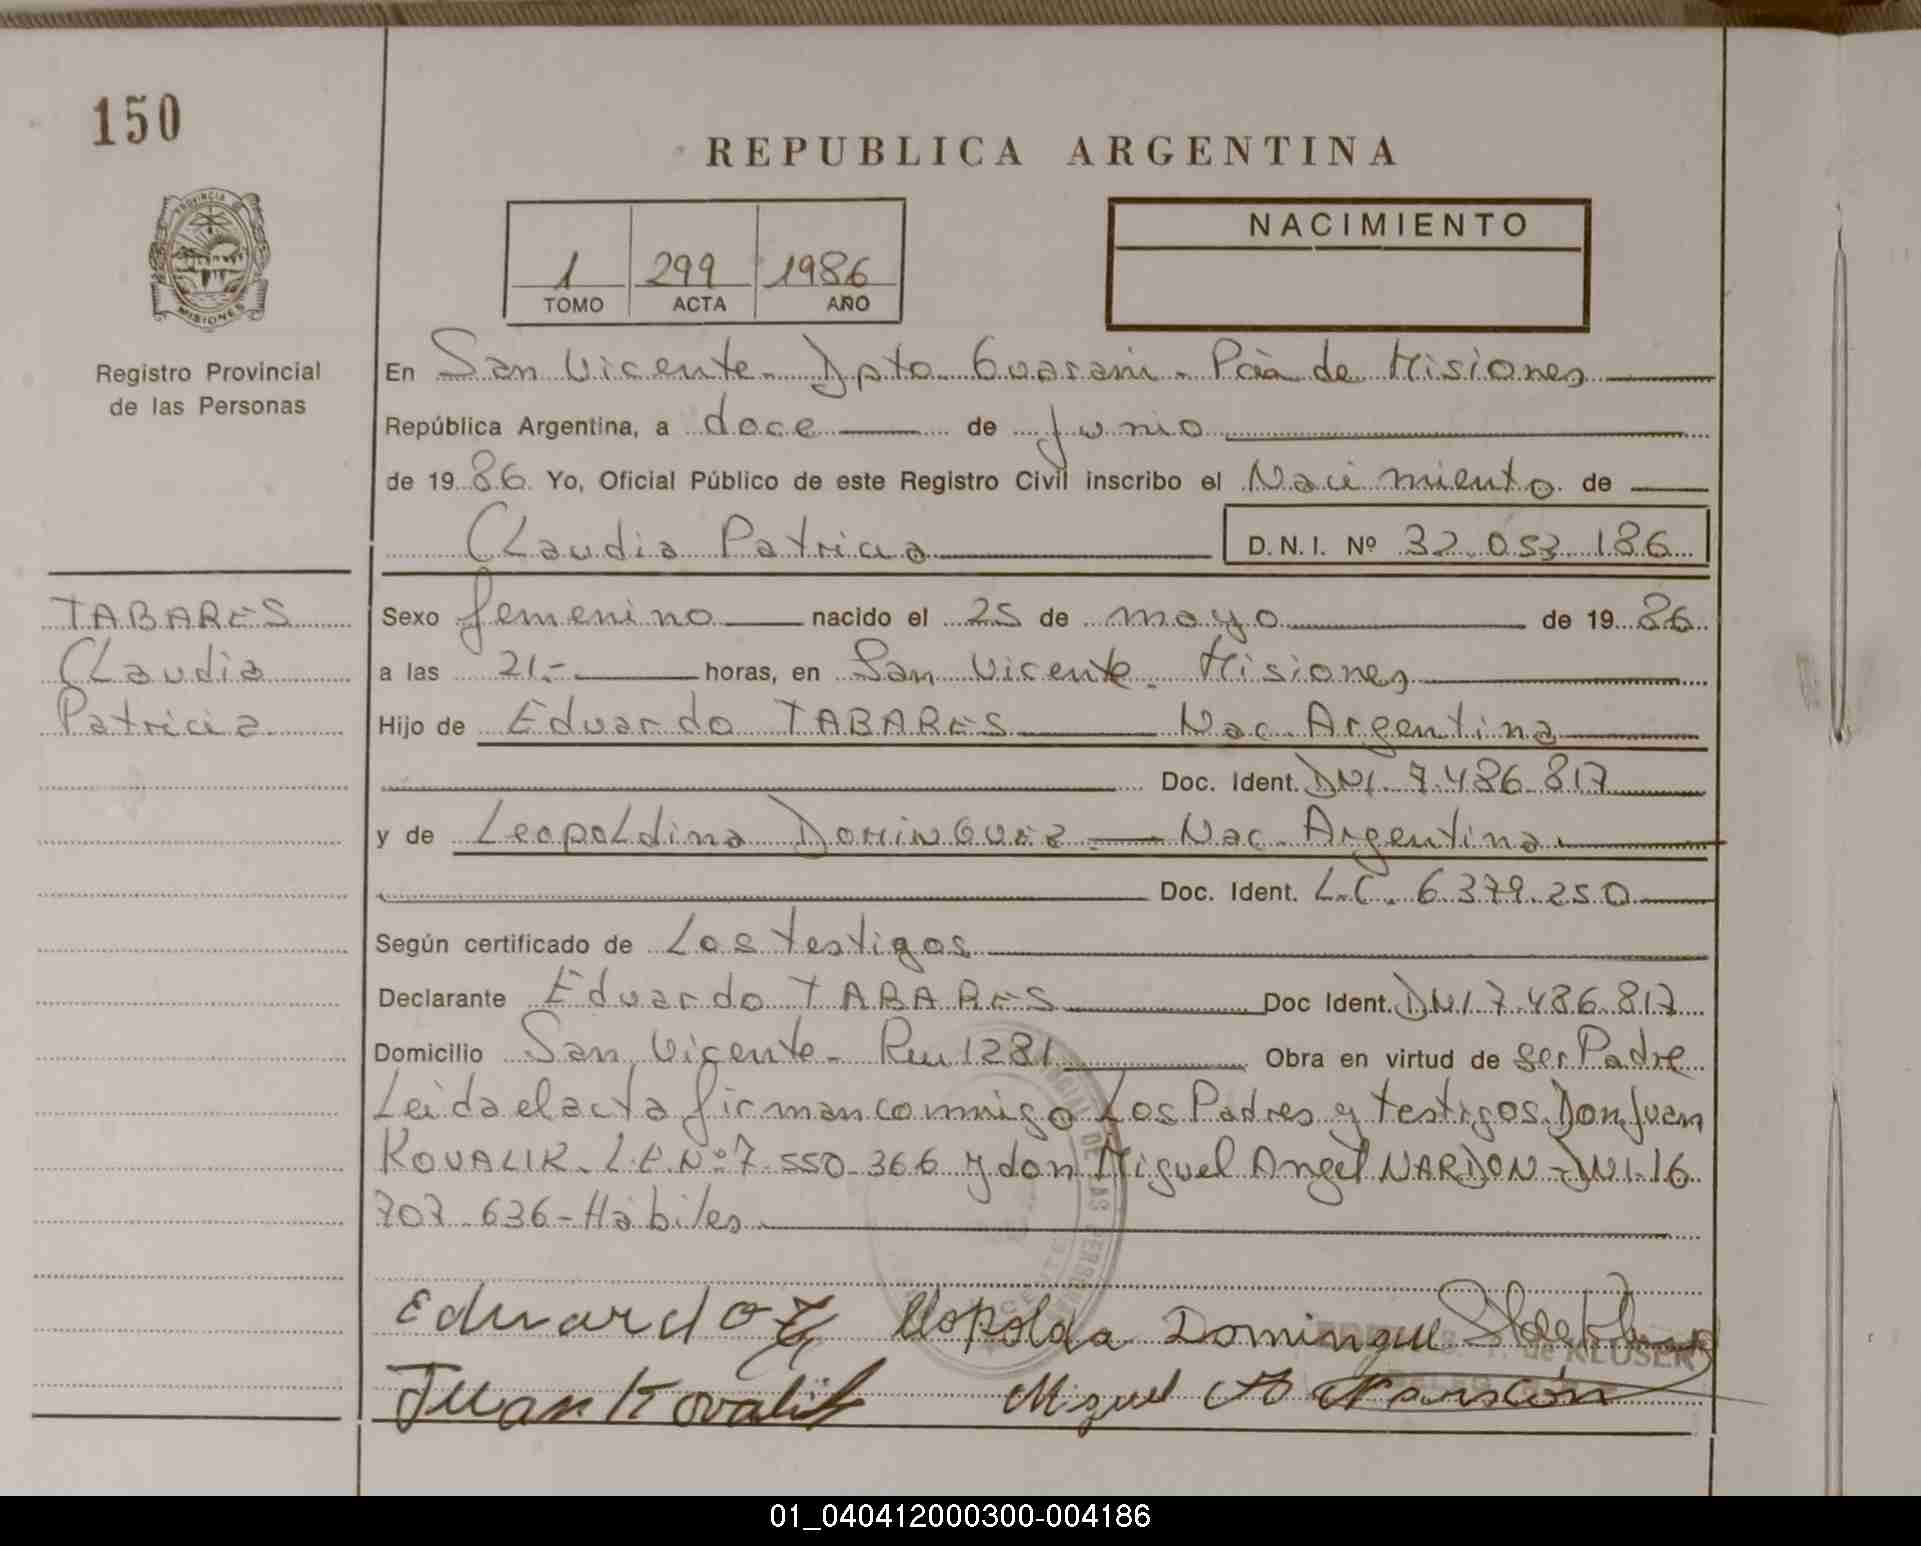 150
REPUBLICA ARGENTINA
PROVINCIA DE
MISIONES
Registro Provincial
de las Personas
1 299 1986
TOMO ACTA AÑO
NACIMIENTO
En San Vicente - Dpto Guarani - Pcia de Misiones
República Argentina, a doce de Junio
de 19 86 Yo, Oficial Público de este Registro Civil inscribo el Nacimiento de
Claudia Patricia D.N.I. Nº 32.053.186
TABARES
Claudia
Patricia
Sexo femenino nacido el 25 de mayo de 19 86
a las 21.- horas, en San Vicente - Misiones
Hijo de Eduardo TABARES Nac. Argentina
Doc. Ident. DNI. 7.486.817
y de Leopoldina DOMINGUEZ - Nac. Argentina
Doc. Ident. L.C. 6.379.250
Según certificado de Los testigos
Declarante Eduardo TABARES Doc Ident. DNI 7.486.817
Domicilio San Vicente - Ru 1281 Obra en virtud de ser Padre
Leida el acta firman conmigo Los Padres y testigos Don Juan
KOVALIK. L.E. Nº 7.550.366 y don Miguel Angel NARDON - DNI-16
707.636 - Hábiles
Eduardo Leopolda Domingue
de KLUSER
Juan Kovalik Miguel A Narscón
01_040412000300-004186